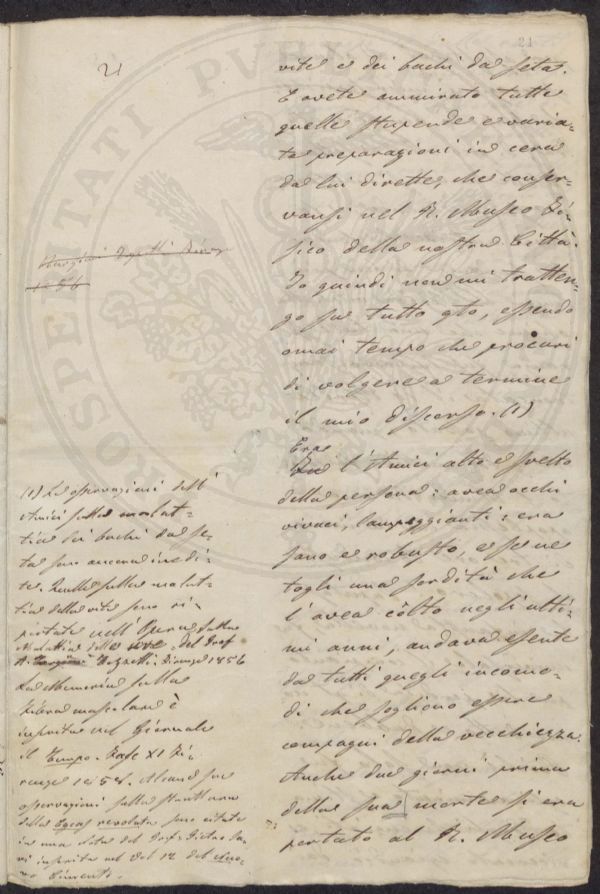 21
21
vite e dei bachi da seta.
E avete ammirato tutte
quelle stupende e varia-
te preparazioni in cera
da lui dirette, che conser-
vansi nel R. Museo Fi-
sico della nostra Città.
Io quindi non mi tratten-
go su tutto qto, essendo
omai tempo che procuri
di volgere a termine
il mio discorso. (1)
Era
l'Amici alto e svelto
della persona: avea occhi
vivaci, lampeggianti: era
sano e robusto, e se ne
togli una sordità che
l'avea còlto negli ulti-
mi anni, andava esente
da tutti quegli incomo-
di che sogliono essere
compagni della vecchiezza.
Anche due giorni prima
della sua morte si era
portato al R. Museo
1856
(1) Le osservazioni dell'
Amici sulla malat-
tia dei bachi da se-
ta sono ancora inedi-
te. Quelle sulla malat-
tia della vite sono ri-
portate nell'Opera sulla
Malattia delle uve del Prof
A. Targioni Tozzetti. Firenze 1856
La Memoria sulla
fibra muscolare è
inserita nel Giornale
il Tempo. Fasc XI Fi-
renze 1858. Alcune sue
osservazioni sulla struttura
della
in una Nota del Prof. Pietro Sa-
vi inserita nel Vol 12 del Nuo-
vo Cimento.